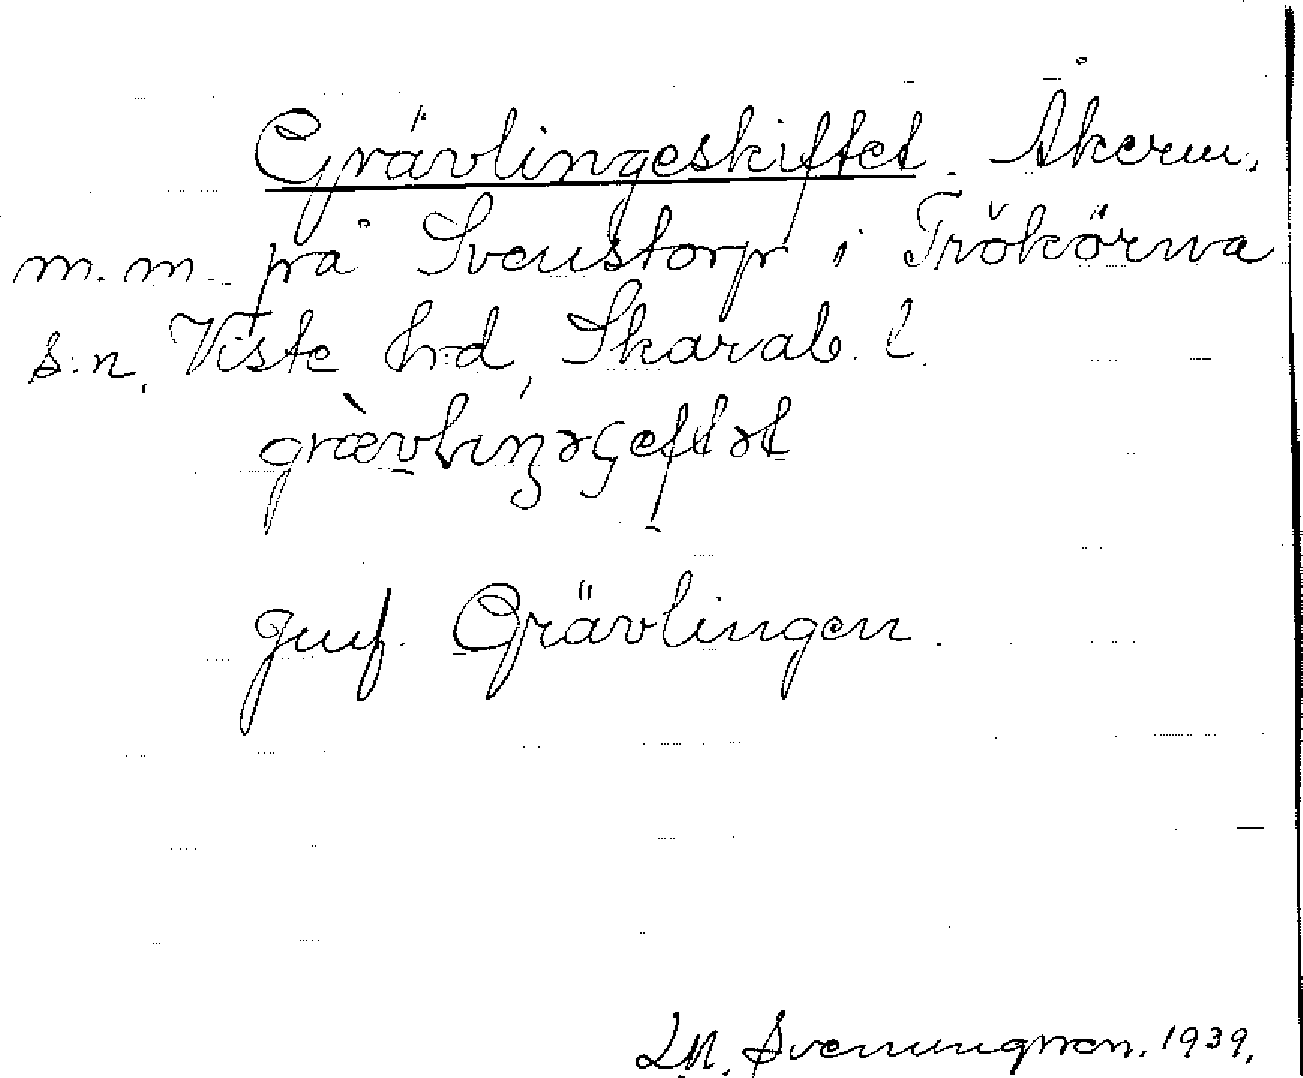 Grävlingeskiftet. Åkerm.
m.m. på Svenstorp i Trökörna
s:n, Viste hrd, Skarab. l.
grævlıŋəʂeftət
Jmf. Grävlingen.
L.M. Svenungsson. 1939.